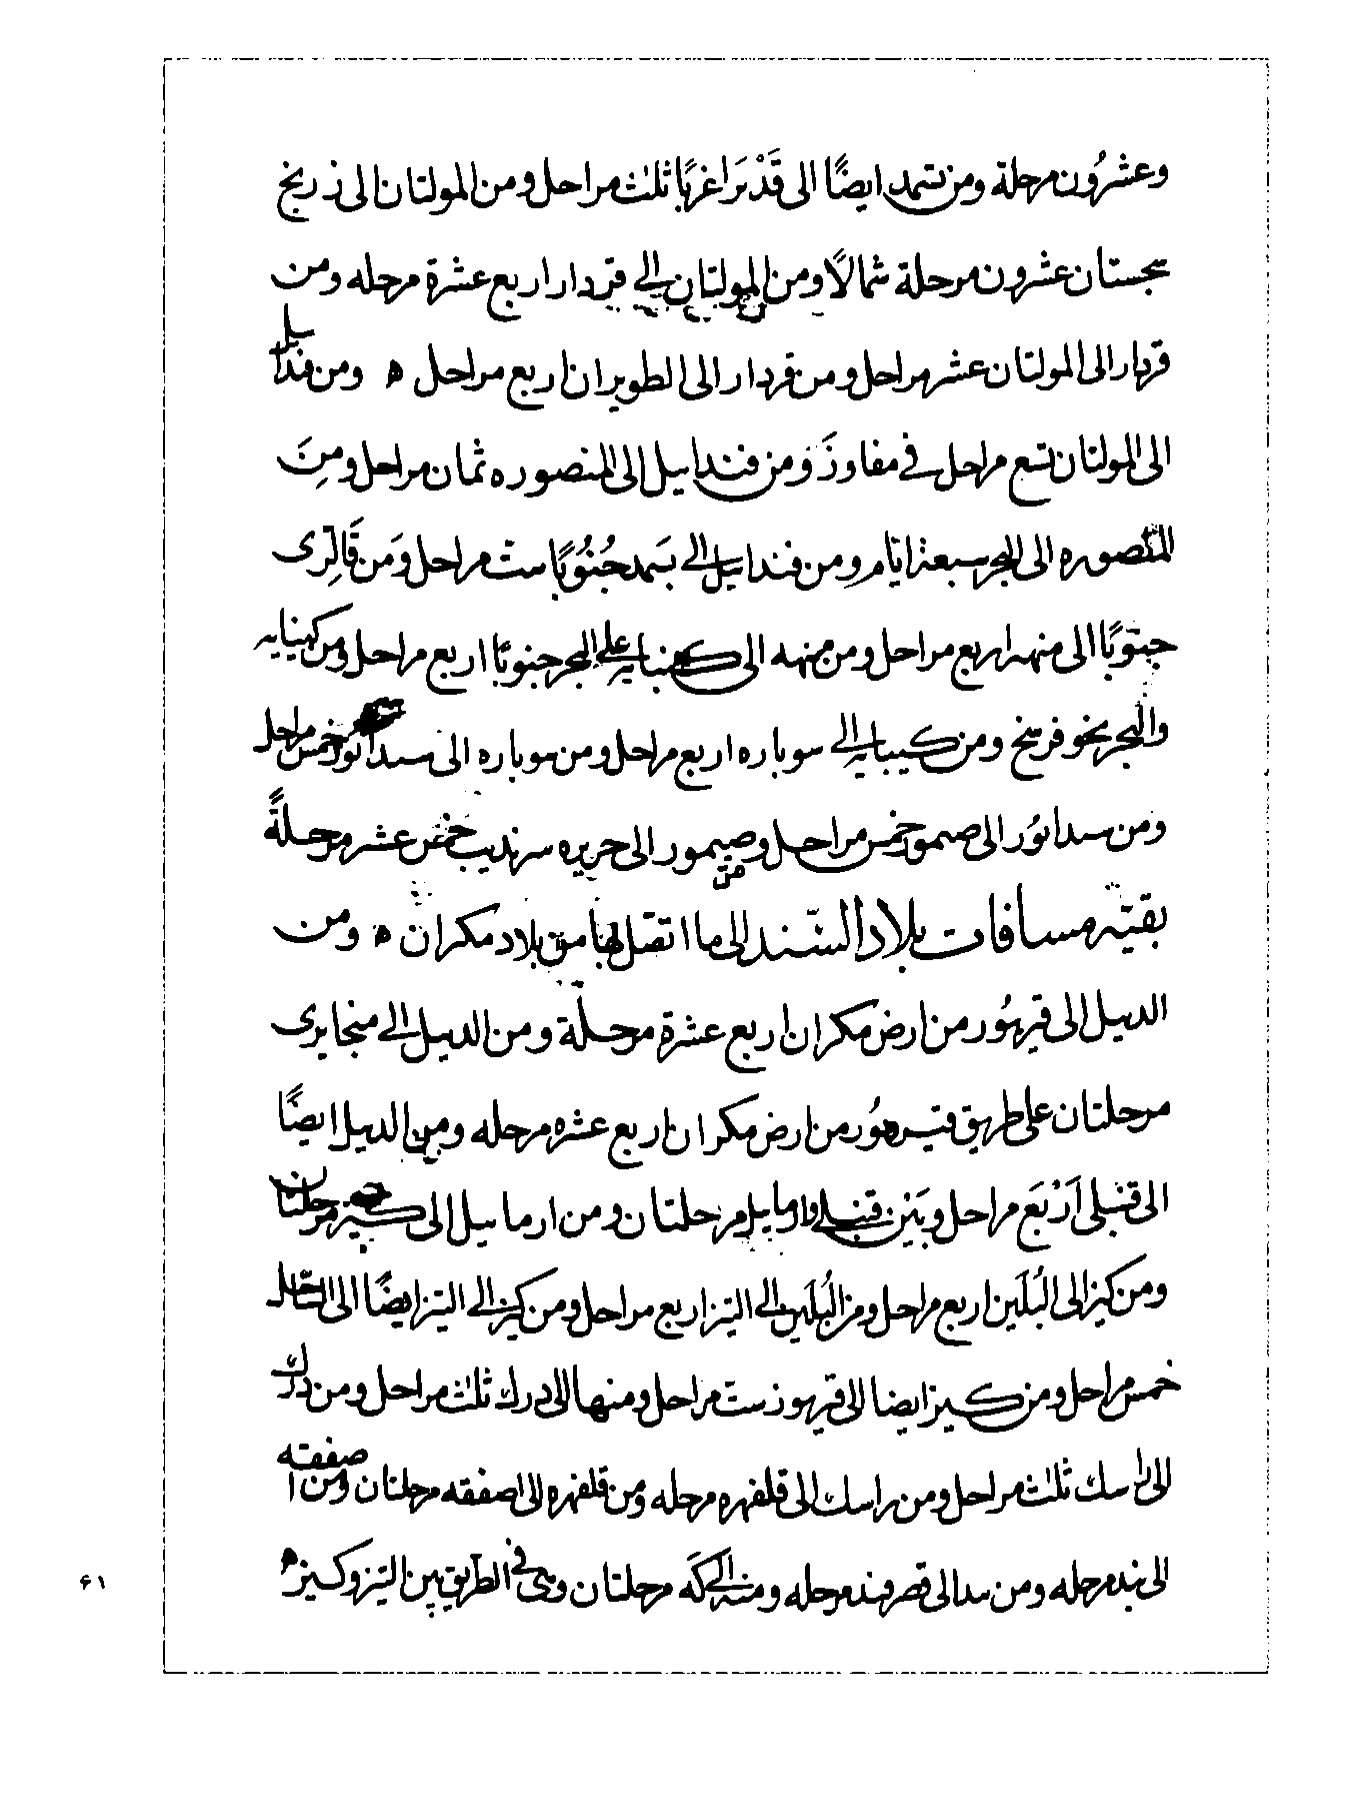 وعشرُون مرحلة ومن بسمد ايضًا الى قَدْبَرَا غربًا ثلث مراحل ومن المولتان الى زرنج
سجستان عشرون مرحلة شمالًا ومن المولتان الى قزدار اربع عشرة مرحله ومن
قزدار الى المولتان عشر مراحل ومن قزدار الى الطويران اربع مراحل ه ومن قندابيل
الى المولتان تسع مراحل في مفاوز ومن قندابيل الى المنصوره ثمان مراحل ومن
المنصوره الى البحر سبعة ايام ومن قندابيل الى بسمد جنُوبًا ست مراحل ومن قالرى
جنوبًا الى منهه اربع مراحل ومن منهه الى كنبايه على البحر جنوبًا اربع مراحل ومن كنبايه
والبحر نحو فرسخ ومن كنبايه الى سوباره اربع مراحل ومن سوباره الى سندانور خمس مراحل
ومن سندانور الى صيمور خمس مراحل ومن صيمور الى جزيره سرنديب خمس عشر مرحلةً
بقيّه مسافات بلاد السّند الى ما اتصل بها من بلاد مكران ه ومن
الديبل الى قيرهُور من ارض مكران اربع عشرة مرحلة ومن الديبل الى منجابرى
مرحلتان على طريق قيرهُور من ارض مكران اربع عشره مرحله ومن الديبل ايضًا
الى قنبلى اَرْبَع مراحل وبَيْن قنبلى وارمايل مرحلتان ومن ارمابيل الى كيز مرحلتان
ومن كيز الى البُلَين اربع مراحل ومن البُلَين الى التيز اربع مراحل ومن كيز الى التيز ايضًا الى الساحل
خمس مراحل ومن كيز ايضا الى قيرهوز ست مراحل ومنها الى درك ثلث مراحل ومن درك
الى راسك ثلث مراحل ومن راسك الى قلفهره مرحله ومن قلفهره الى اصفقه مرحلتان ومن اصفقه
الى بند مرحله ومن بند الى قصر فند مرحله ومنه الى كَه مرحلتان وهى في الطريق بين التيز وكيز ه
۶۱